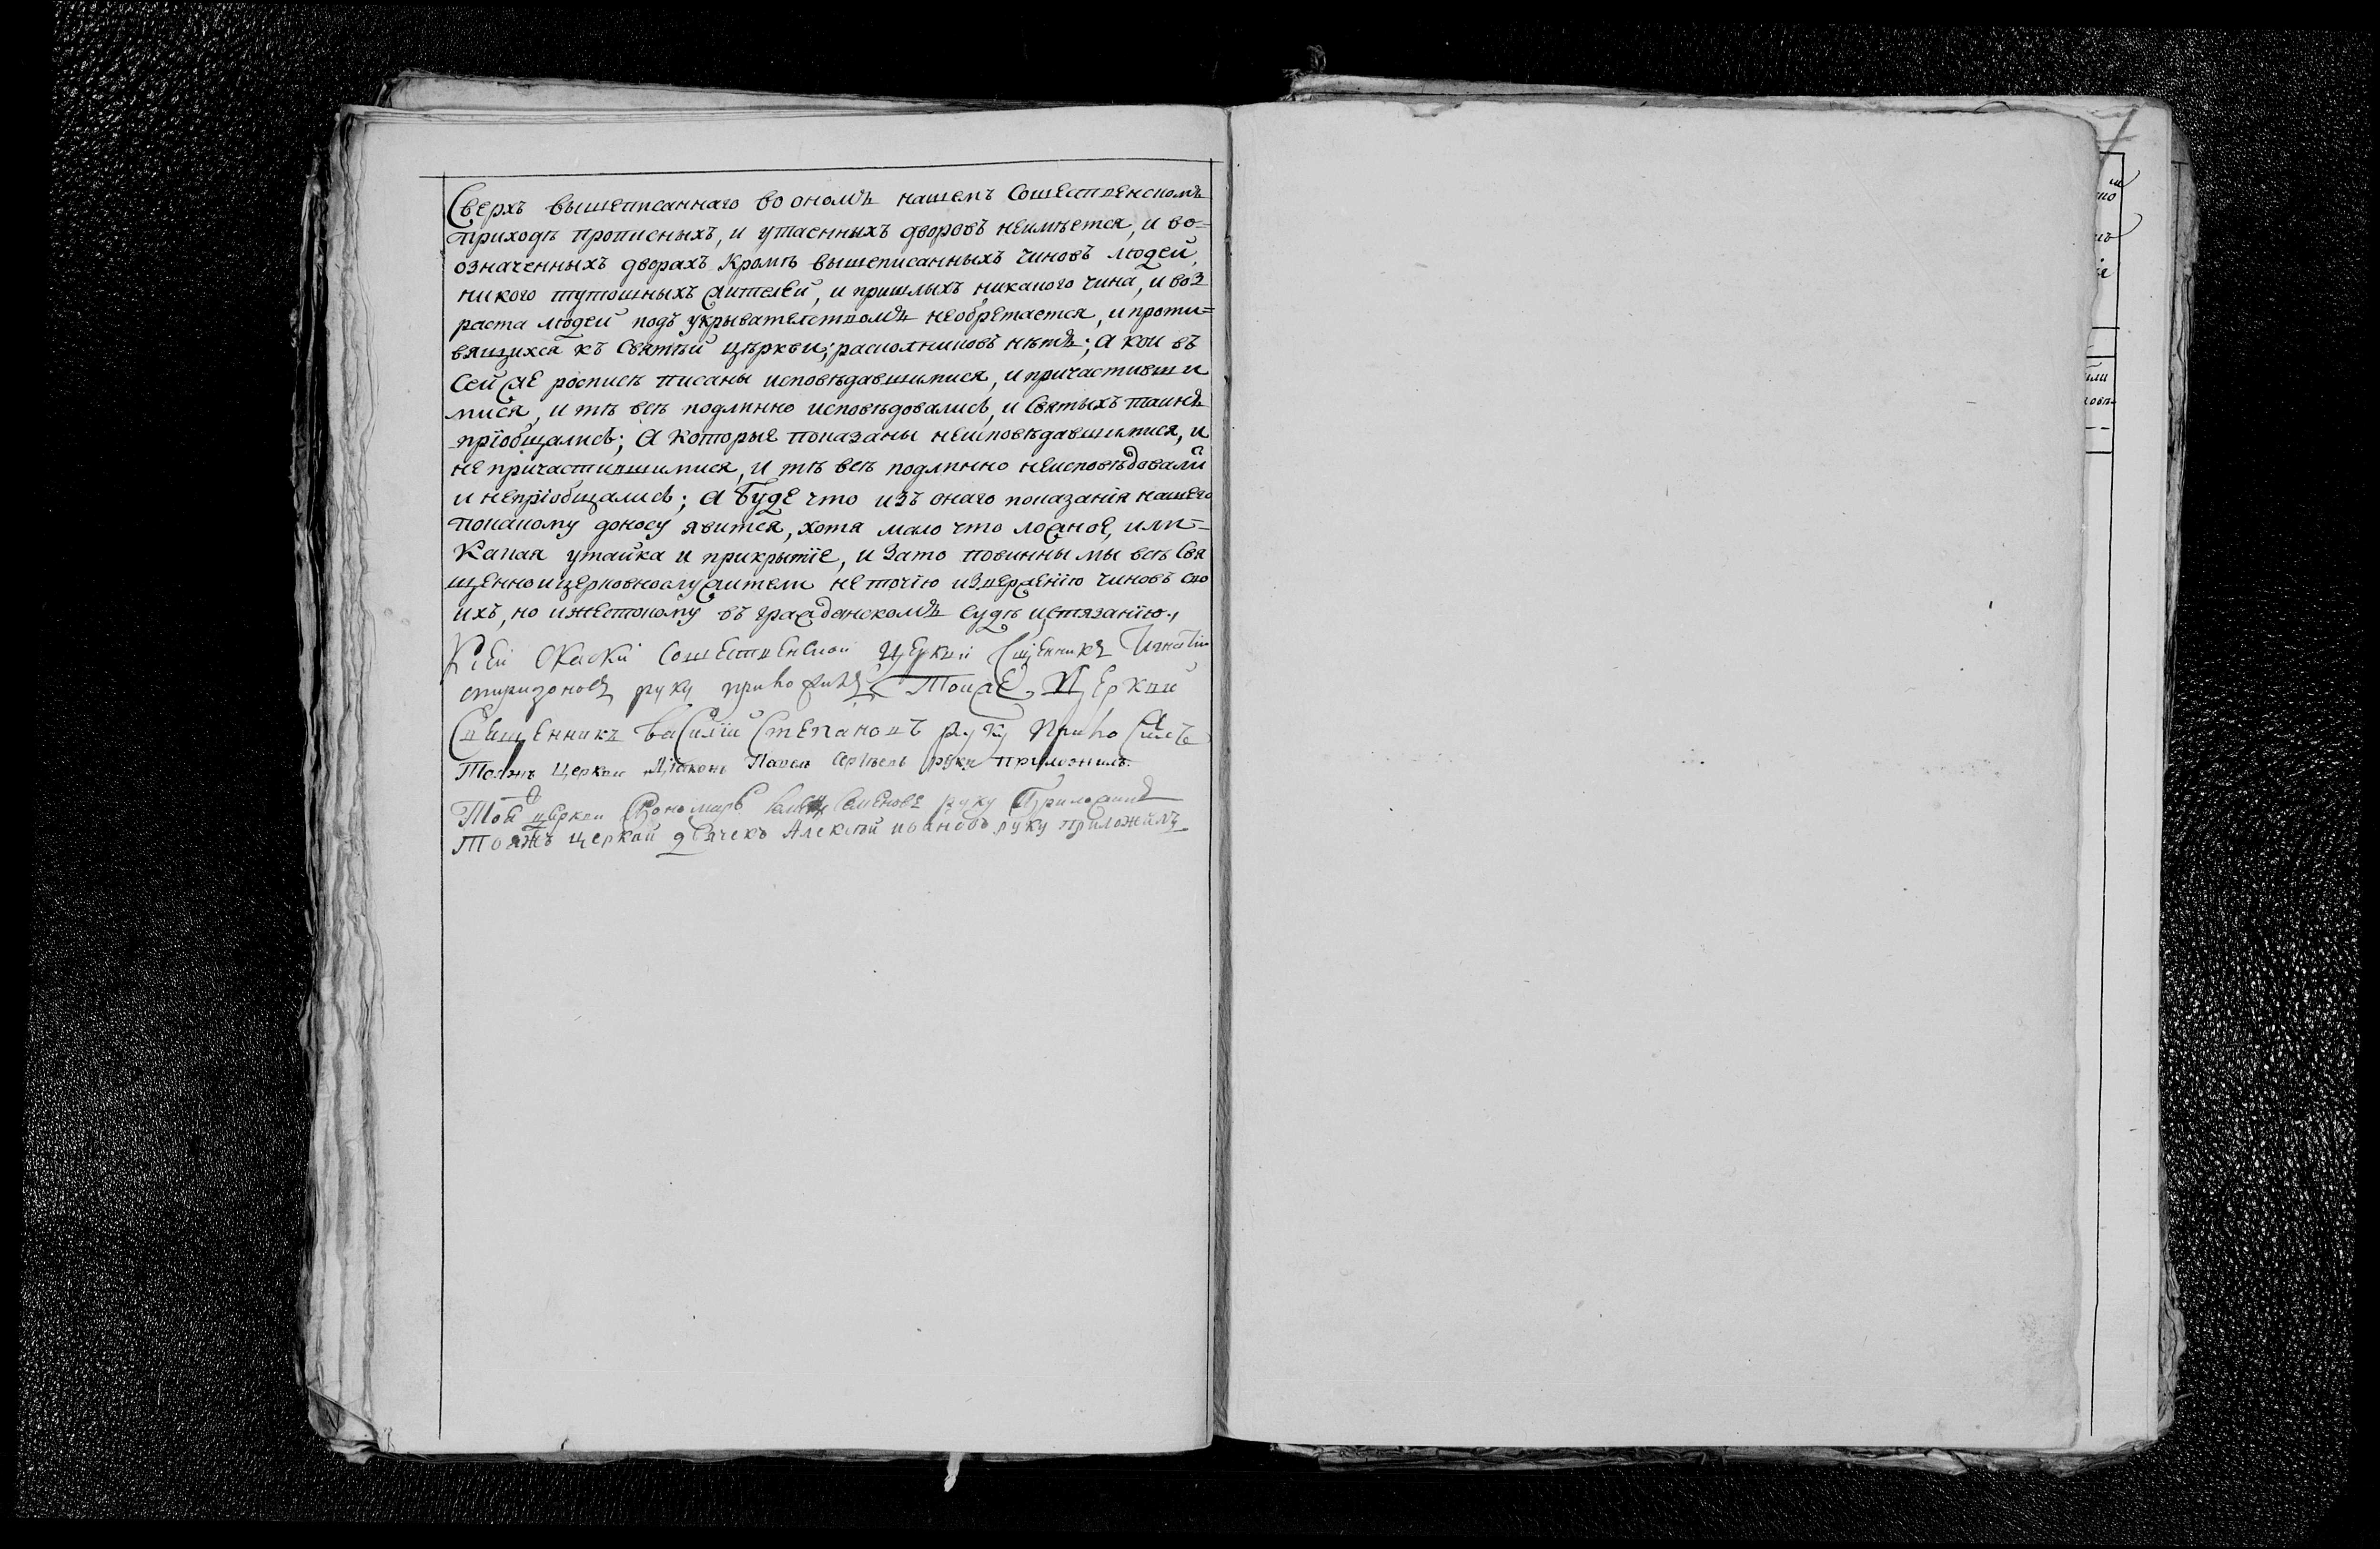 Сверхъ вышеписаннаго во ономъ нашемъ Сошественскомъ
приходѣ прописныхъ, и утаенныхъ дворовъ неимѣется, и во=
означенныхъ дворахъ кромѣ вышеписанныхъ чиновъ людей,
никого тутошныхъ жителей, и пришлыхъ никакого чина, и воз
раста людей подъ укрывателствомъ необрѣтается, и проти=
вящихся къ Святѣй церкви; расколниковъ нѣтъ; а кои въ
сей же росписѣ писаны исповѣдавшимися, и причастивши
мися, и тѣ всѣ подлинно исповѣдовались, и Святыхъ таинъ
пріобщались; а которые показаны неисповѣдавшимися, и
не причастившимися, и тѣ всѣ подлинно неисповѣдовали
и непріобщались; а буде что изъ онаго показанія нашего
покакому доносу явится, хотя мало что ложное, или=
какая утайка и прикрытіе, и зато повинны мы всѣ Свя
щенно и церковнослужители не точію извержению чиновъ сво
ихъ, но и жестокому въ гражданскомъ судѣ истязанію.
К сей скаски Сошественской церкви сщенникъ Игнатіи
спиридоновъ руку приложилъ Тоиже церкви
Священникъ Василіи Степановъ руку приложилъ
Тояжъ церкви Діаконъ Павелъ Сергѣевъ руку приложилъ
Той церкви пономарь Семеновъ руку приложилъ
Тояжъ церкви дьячекъ Алексѣй ивановъ руку приложилъ